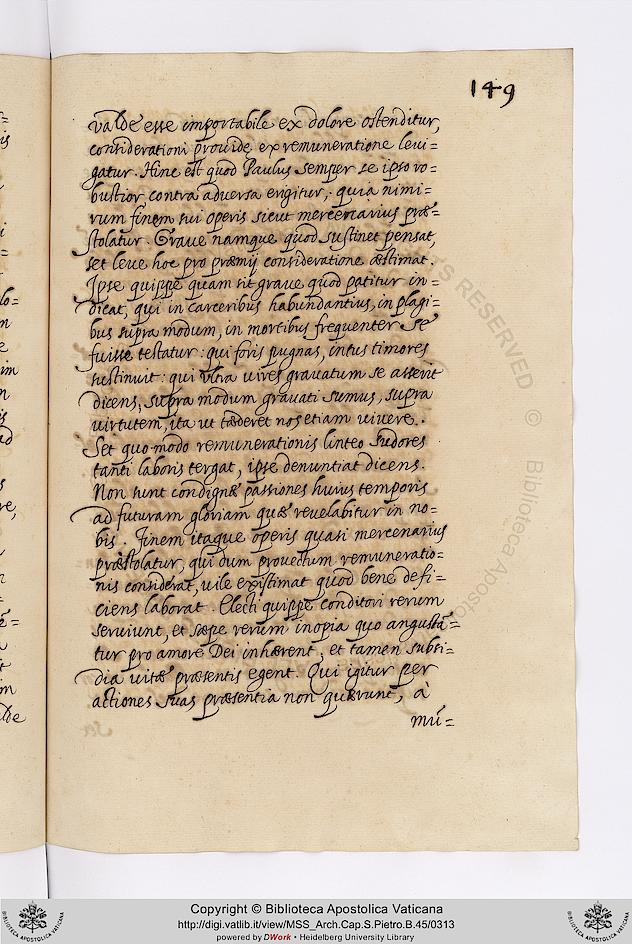 149
valde esse importabile ex dolore ostenditur,
considerationi provide ex remuneratione levi=
gatur. Hinc est quod Paulus semper se ipso ro=
bustior contra adversa erigitur; quia nimi=
rum finem sui operis sicut mercenarius præ=
stolatur. Grave namque quod sustinet pensat,
set leve hoc pro præmij consideratione æstimat.
Ipse quippe quam sit grave quod patitur in=
dicat, qui in carceribus habundantius, in plagi=
bus supra modum, in mortibus frequenter se
fuisse testatur: qui foris pugnas, intus timores
sustinuit: qui ultra vires gravatum se asserit
dicens, supra modum gravati sumus, supra
virtutem, ita ut tæderet nos etiam vivere.
Set quo modo remunerationis linteo sudores
tanti laboris tergat, ipse denuntiat dicens.
Non sunt condignæ passiones huius temporis
ad futuram gloriam quæ revelabitur in no=
bis. Finem itaque operis quasi mercenarius
præstolatur, qui dum provectum remuneratio=
nis considerat, vile existimat quod bene defi=
ciens laborat. Electi quippe conditori rerum
serviunt, et sæpe rerum inopia quo angustã=
tur pro amore Dei inhærent, et tamen subsi=
dia vitæ præsentis egent. Qui igitur per
actiones suas præsentia non quærunt, à
mũ=
RIGHTS RESERVED © Biblioteca Apostolica
Copyright © Biblioteca Apostolica Vaticana
http://digi.vatlib.it/view/MSS_Arch.Cap.S.Pietro.B.45/0313
powered by DWork • Heidelberg University Library